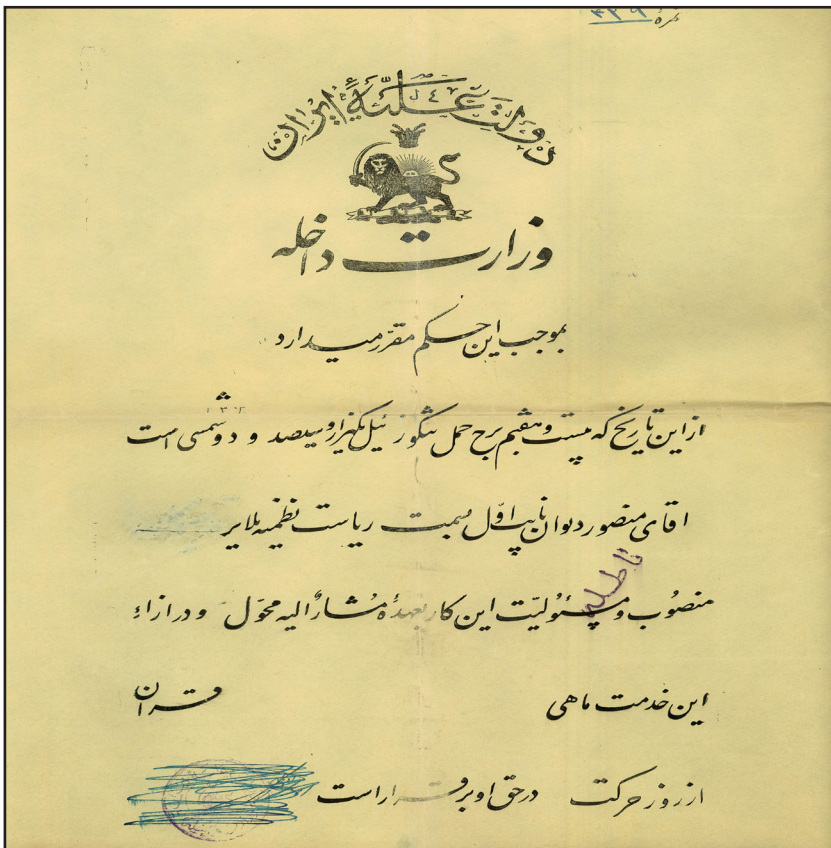 نمرهٔ ۴۳۹
دولت علیّهٔ ایران
وزارت داخله
بموجب این حکم مقرّر میدارد
از این تاریخ که بیست و هفتم برج حمل تنگوز ئیل یکهزار و سیصد و دو شمسی است
۱۳۰۲
اقای منصور دیوان نایب اوّل بسمت ریاست نظمیه ملایر
باطله
منصوب و مسئولیّت این کار بعهدهٔ مشارٌ الیه محوّل و در ازاء
این خدمت ماهی قران
از روز حرکت در حق او برقرار است